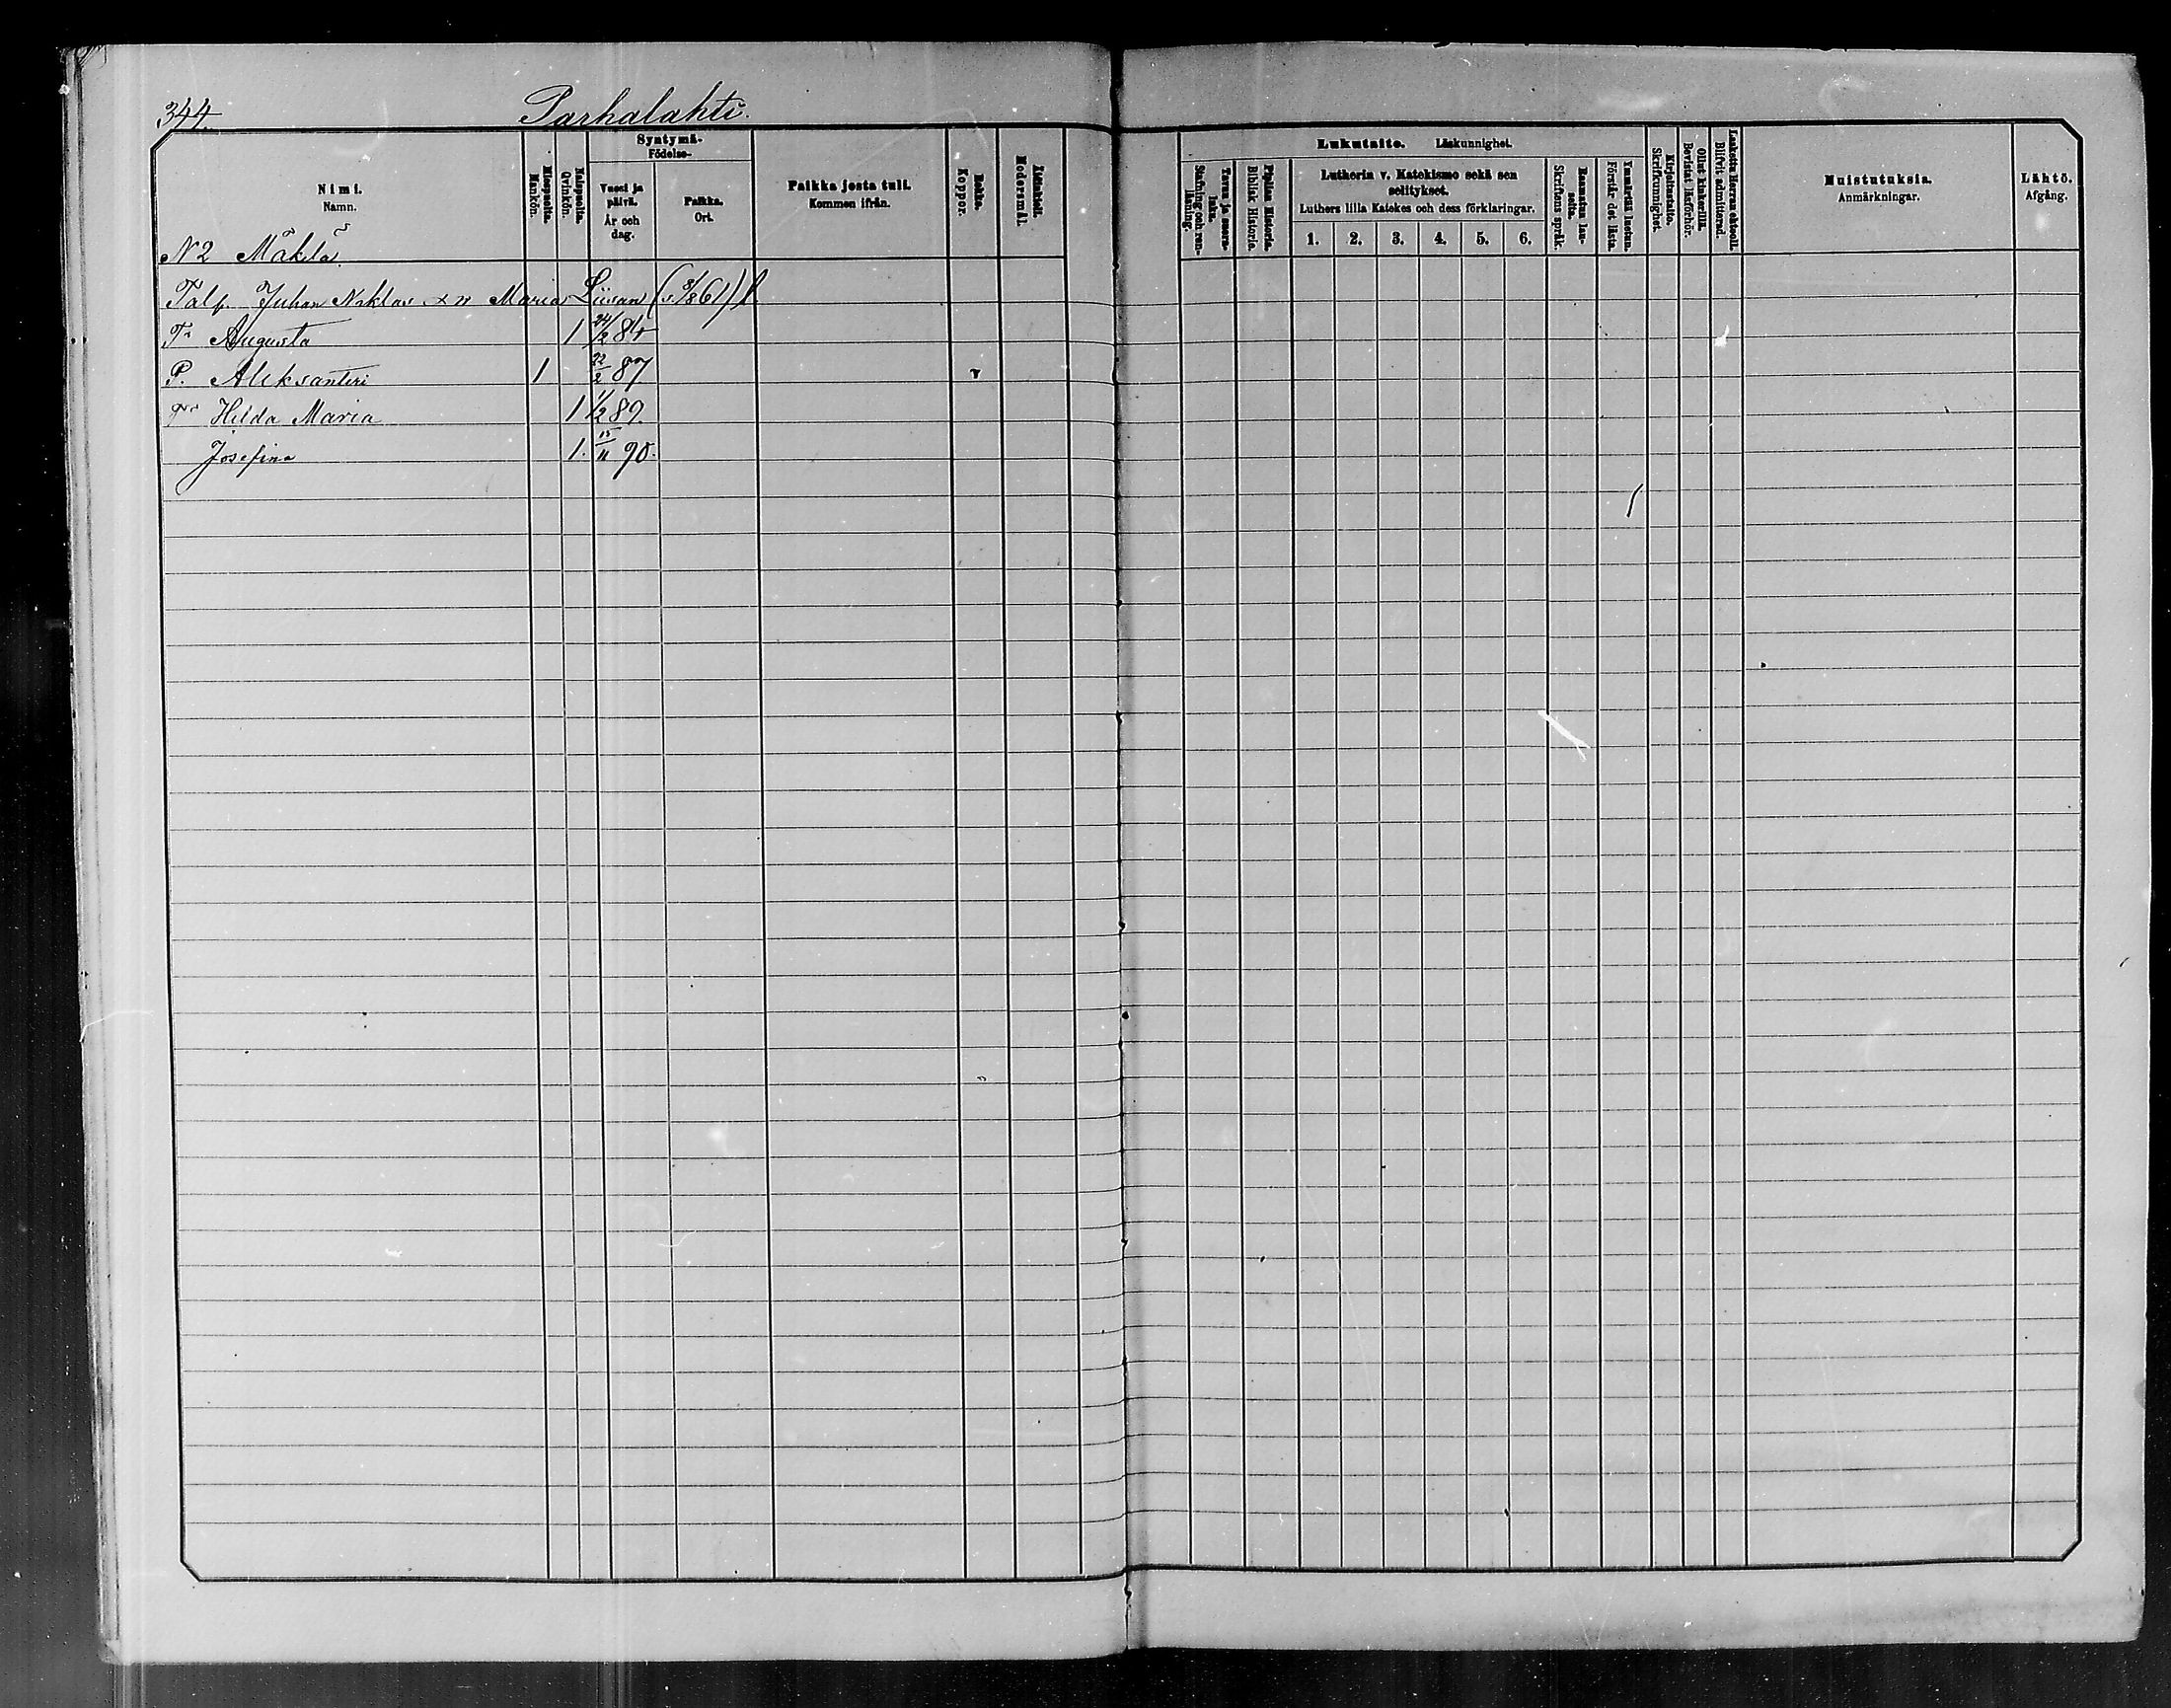 344.
Parhalahti.
Nimi.
Namn.
Miespuolia.
Mankön.
Naispuolia.
Qvinkön.
Syntymä-
Födelse-
Vuosi ja päivä.
År och dag.
Paikka.
Ort.
Paikka josta tuli.
Kommen ifrån.
Rokko.
Koppor.
Äidinkieli.
Modersmål.
Lukutaito. Läskunnighet.
Tavuu ja suora-luku.
Stafning och ren-läsning.
Piplian Historia.
Biblisk Historia.
Lutherin v. Katekismo sekä sen selitykset.
Luthers lilla Katekes och dess förklaringar.
1. 2. 3. 4. 5. 6.
Raamatun lau-seita.
Skriftens språk.
Ymmärtää luetun.
Förstår det lästa.
Kirjoitustaito.
Skrifkunnighet.
Ollut kinkerillä.
Bevistat läsförhör.
Laskettu Herran ehtoolle.
Blifvit admitterad.
Muistutuksia.
Anmärkningar.
Lähtö.
Afgång.
N 2 Mäklä
Talp. Juhan Niklas Maria Liisan (s 3/8 61) l
Tr Augusta 1 24/2 84
P. Aleksanteri 1 22/2 87 r
Tr Hilda Maria 1 1/2 89.
Josefina 1. 15/11 90.